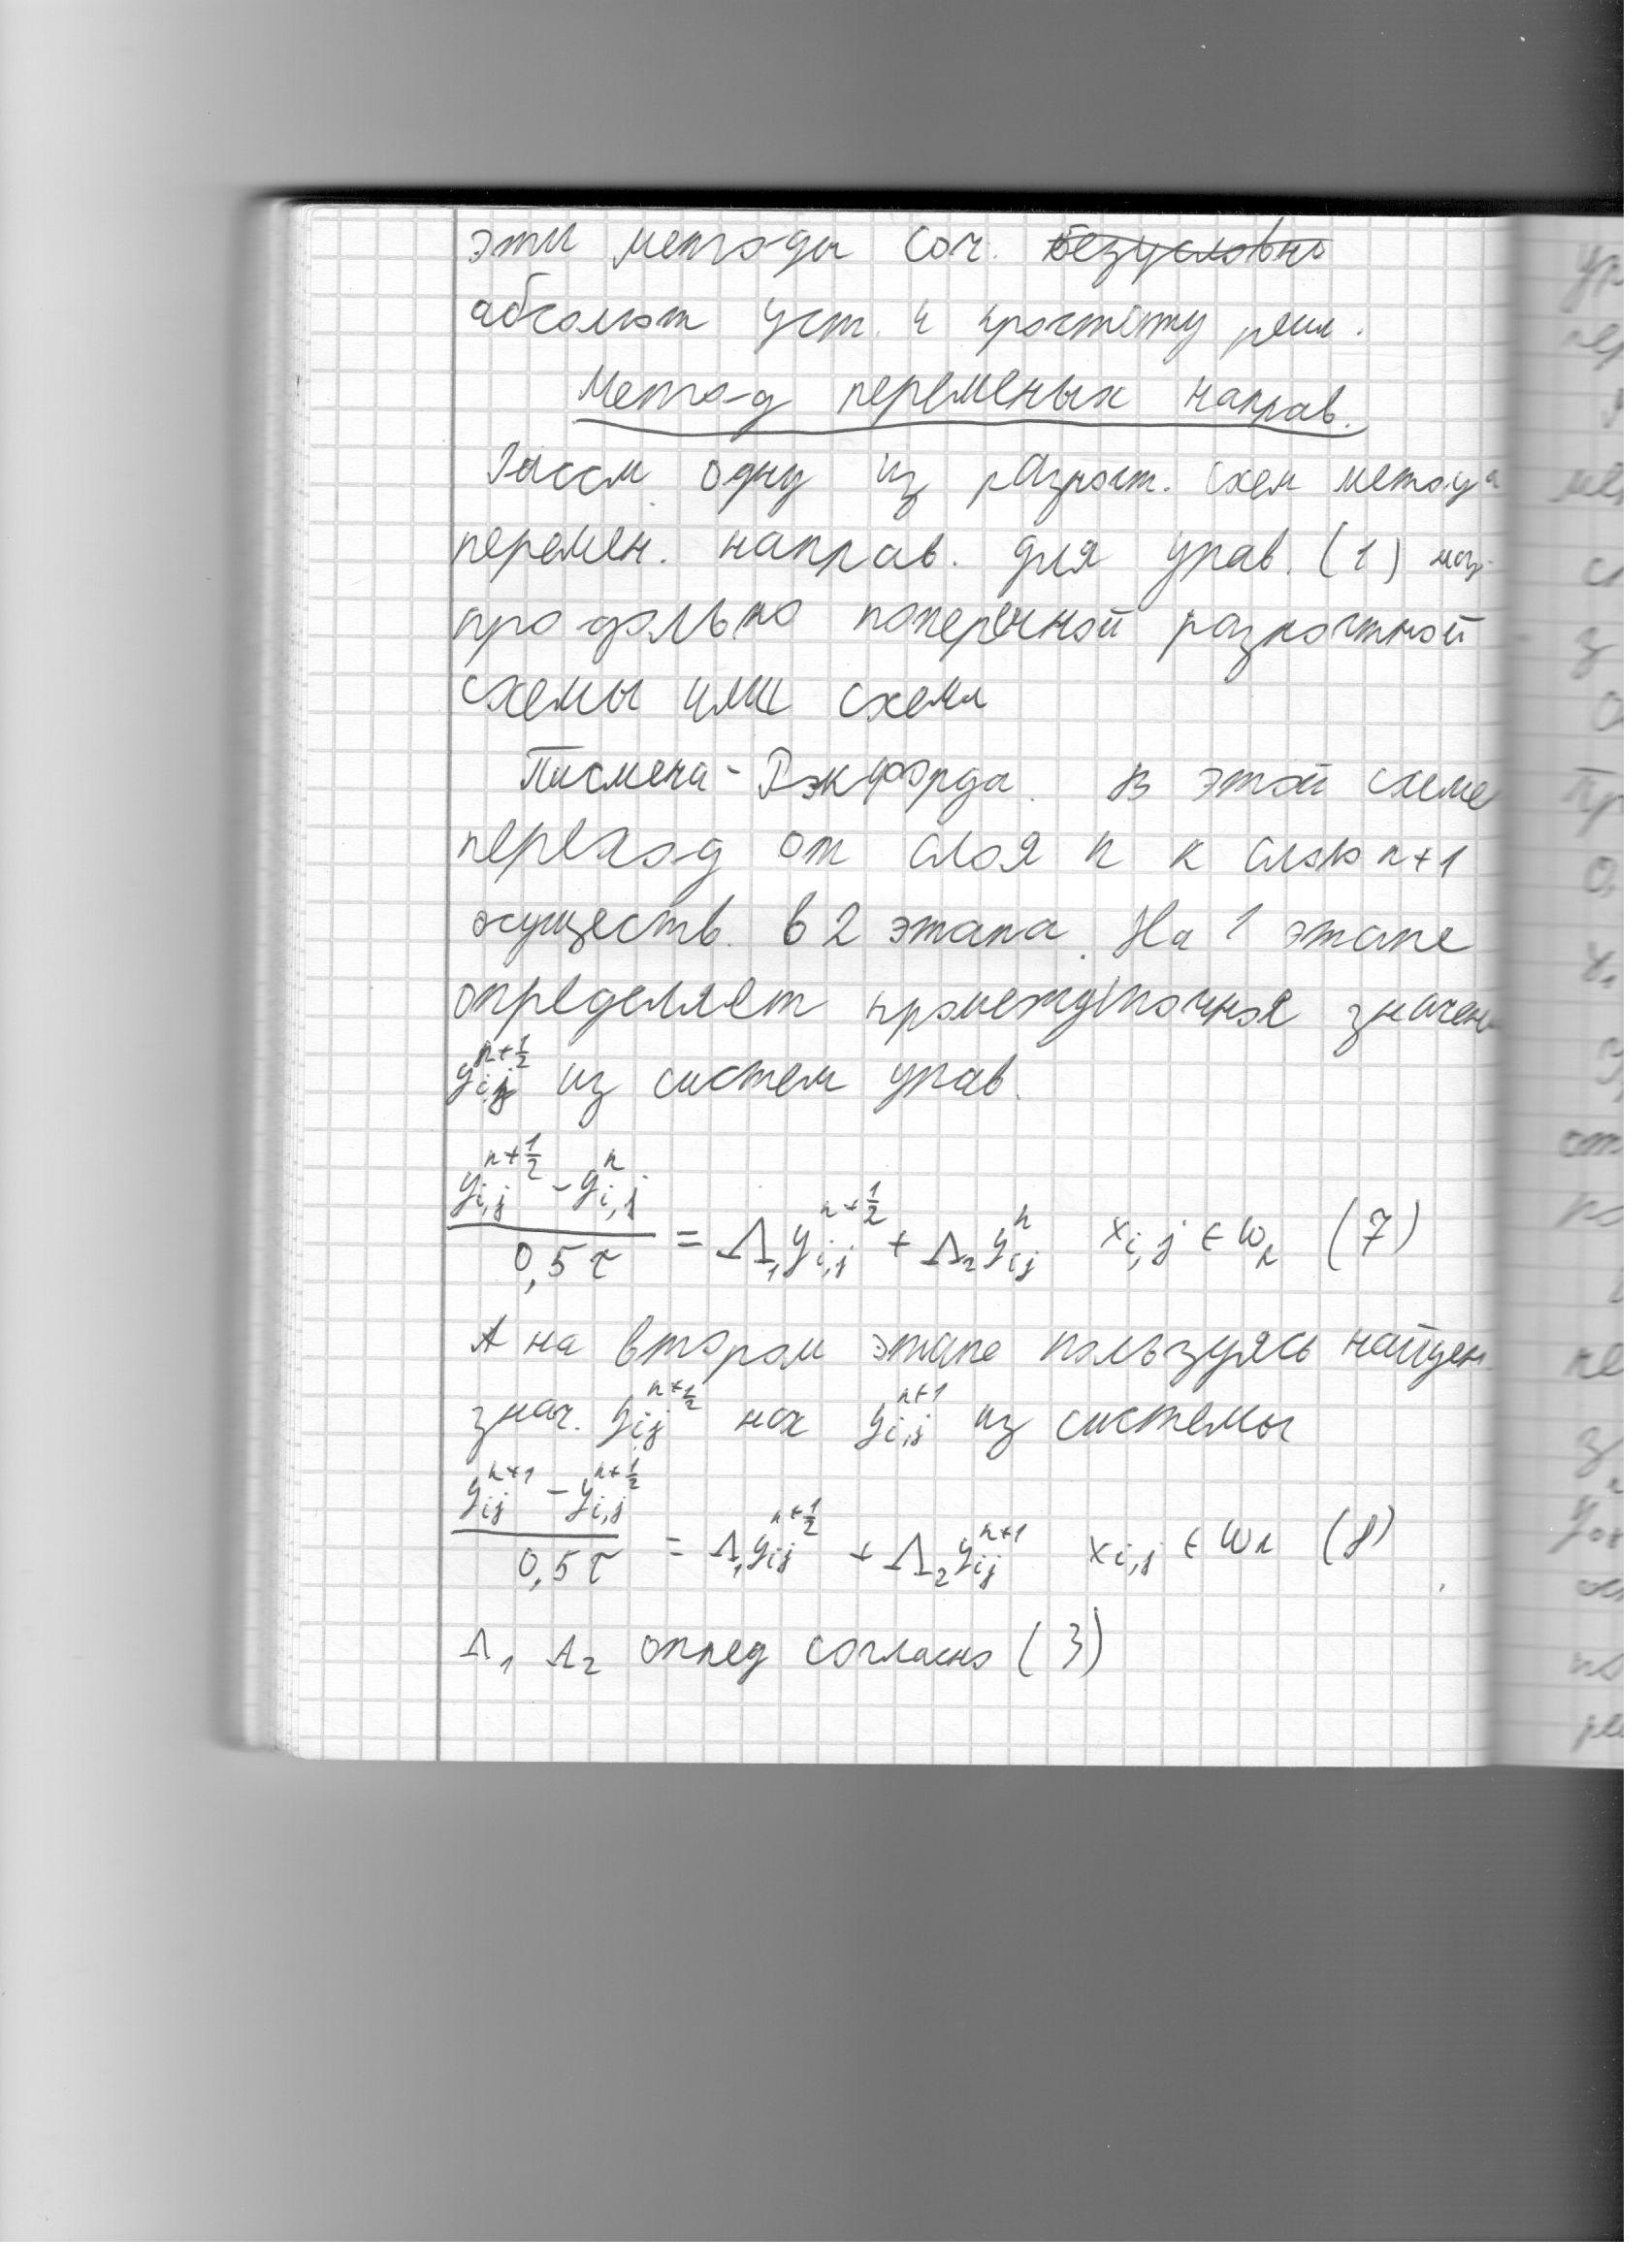 эти методы соч. безусловно
абсолют уст. и простоту реш.
Метод переменых направ.
Рассм одну из разност. схем метода
перемен. направ. для урав. (1) наз.
продольно поперечной разностной
схемы или схема
Писмена-Рэкфорда. В этой схеме
переход от слоя n к слою n+1
осуществ. в 2 этапа. На 1 этапе
определяет промежуточное значен
y_{ij}^{n+\frac{1}{2}} из систем урав.
\frac{y_{i,j}^{n+\frac{1}{2}} - y_{i,j}^{n}}{0,5τ} = Λ_1 y_{i,j}^{n+\frac{1}{2}} + Λ_2 y_{ij}^{n} x_{i,j} ∈ ω_h (7)
А на втором этапе пользуясь найден
знач. y_{ij}^{n+\frac{1}{2}} нах y_{i,j}^{n+1} из системы
\frac{y_{ij}^{n+1} - y_{i,j}^{n+\frac{1}{2}}}{0,5τ} = Λ_1 y_{ij}^{n+\frac{1}{2}} + Λ_2 y_{ij}^{n+1} x_{i,j} ∈ ω_h (8)
Λ_1 Λ_2 опред согласно (3)